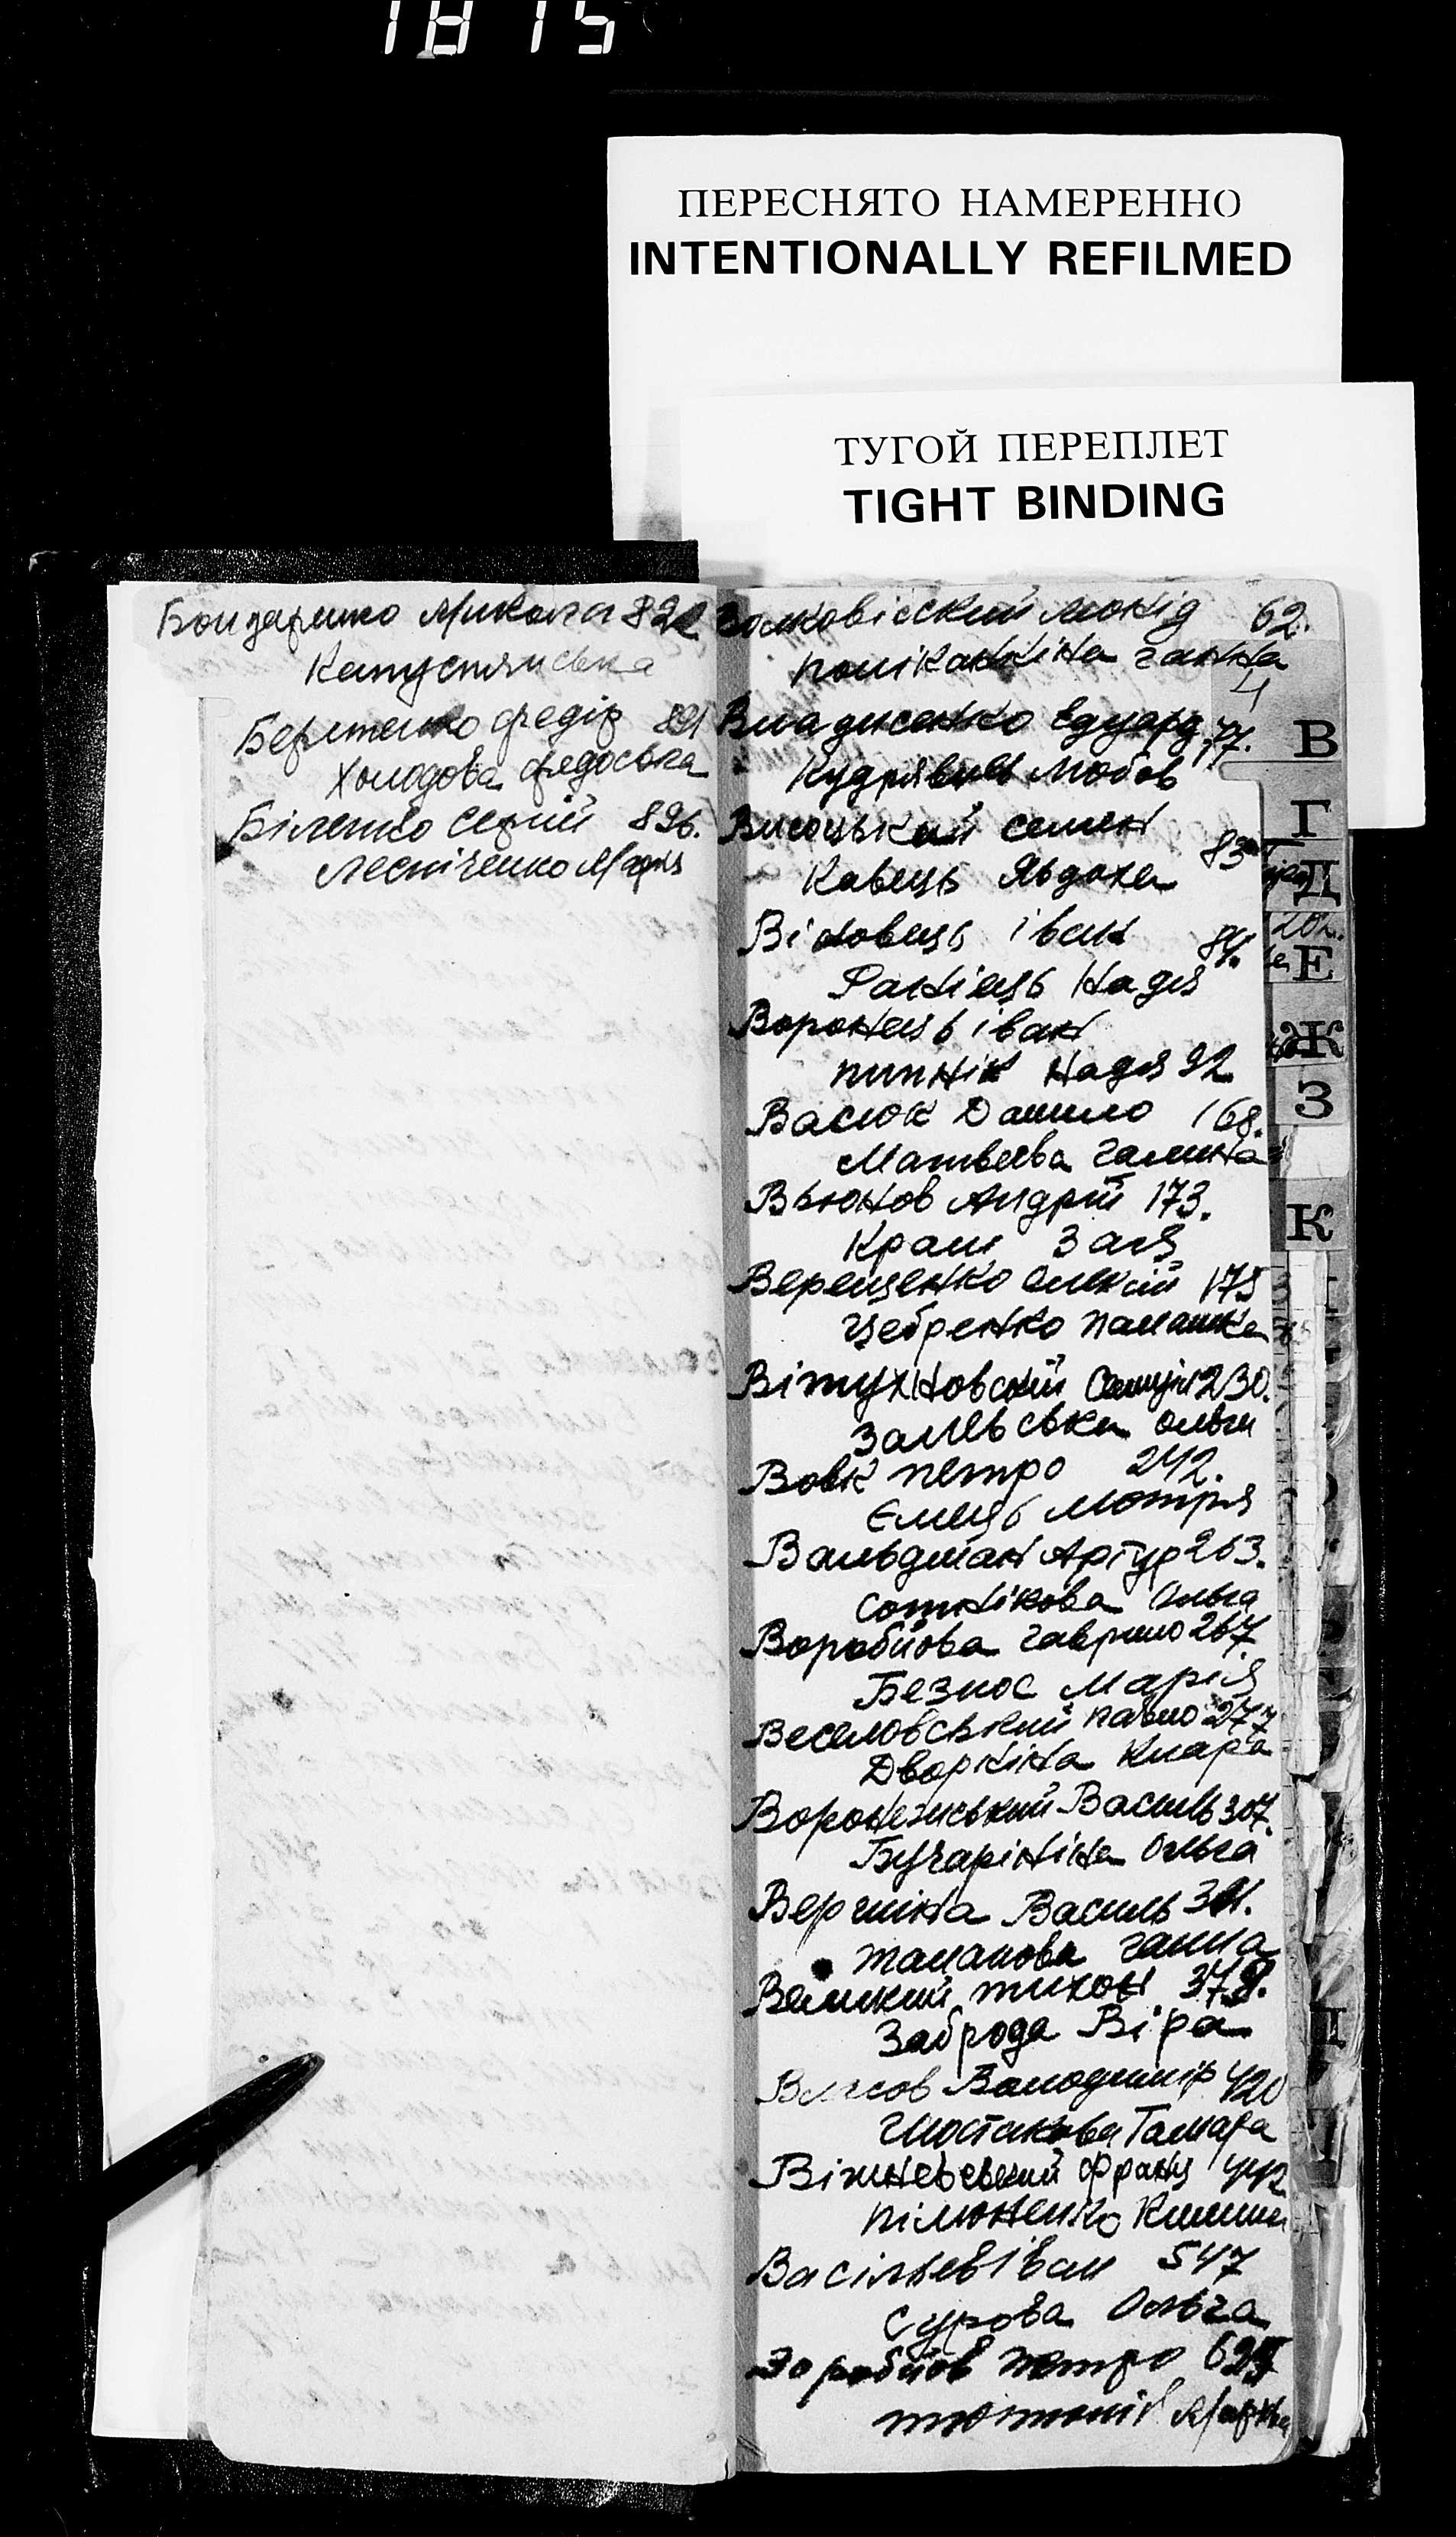 1815
ПЕРЕСНЯТО НАМЕРЕННО
INTENTIONALLY REFILMED
ТУГОЙ ПЕРЕПЛЕТ
TIGHT BINDING
Бондаренко Микола 822
Капустянська
Федір 891
Холодова Федоська
Біленко Сергій 896.
Леснічешко Марія
62.
Ганна
4
Владисенко Едуард 77.
Кудрявець Любов
Висоцький Семен
Кавець Явдоха 83
Віновець Іван 84.
Ранієць Надя
Воронець Іван
Пипнік Надя 92
Васюк Данило 168.
Матвеева Галина
Вьюнов Андрій 173.
Крам Зая
Верещенко Олексій 175
Цебренко
Вітухновский Самуіл 230.
Залевська Ольга
Вовк Петро 242.
Ємець Мотря
Вальдман Артур 263.
Сотнікова Ольга
Воробйова Гаврило 267
Безнос Марія
Веселовський Павло 277
Дворкіна Клара
Василь 307.
Бухарініна Ольга
Василь
Таланова Ганна
Великий Тихон 378.
Заброда Віра
Власов Володимір 420
Шостакова Тамара
Вішневський Франц 442
Пілюненко
Васільев Іван 547
Сурова Ольга
Воробйов Петро
В
Г
Д
Е
Ж
З
К